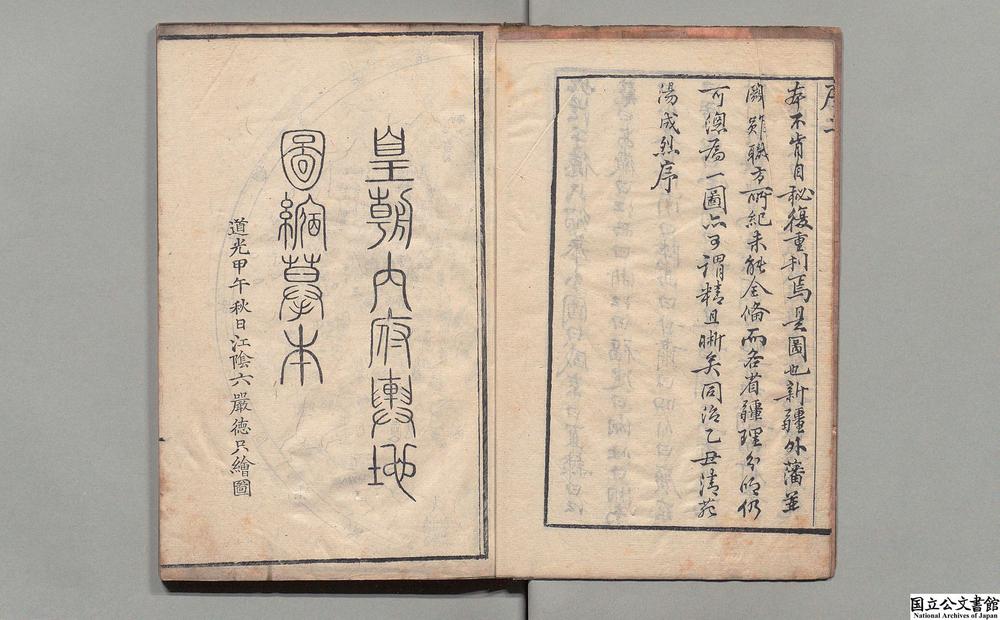 序二
本不肯自秘復重刊焉是圖也新疆外藩並
闕雖職方所紀未能全備而各省疆理分明仍
可總為一圖亦可謂精且晰矣同治乙丑清苑
湯成烈序
皇朝內府輿地
圖縮摹本
道光甲午秋日江陰六嚴德只繪圖
国立公文書館
National Archives of Japan